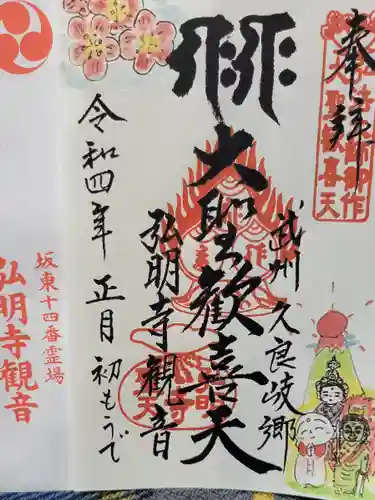 奉拝
武州久良岐郷
大聖歓喜天
弘明寺観音
令和四年 正月 初もうで
坂東十四番霊場
弘明寺観音